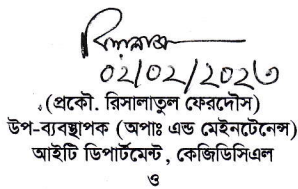 ০২/০২/২০২৩
(প্রকৌ. রিসালাতুল ফেরদৌস)
উপ-ব্যবস্থাপক (অপাঃ এন্ড মেইনটেনেন্স)
আইটি ডিপার্টমেন্ট, কেজিডিসিএল
ও